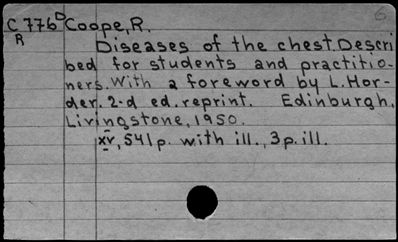 C 776ᴰ Coope, R.
R
Diseases of the chest. Descri
bed for students and practitio-
ners. With a foreword by L. Hor-
der. 2-d ed. reprint. Edinburgh,
Livingstone, 1950.
xv, 541 p. with ill., 3 p. ill.